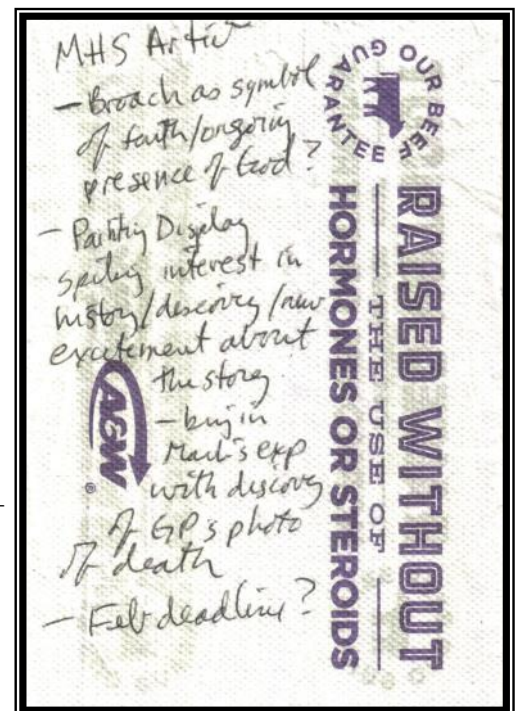 MHS Artic
- Broach as symbol
of faith/ongoing
presence of God?
- Painting Display
spiking interest in
history/discovery/new
excitement about
the story
- buy in
Mark's exp
with discovery
of GP's photo
of death
- Feb deadline?
A&W
®
OUR BEEF GUARANTEE
RAISED WITHOUT
THE USE OF
HORMONES OR STEROIDS